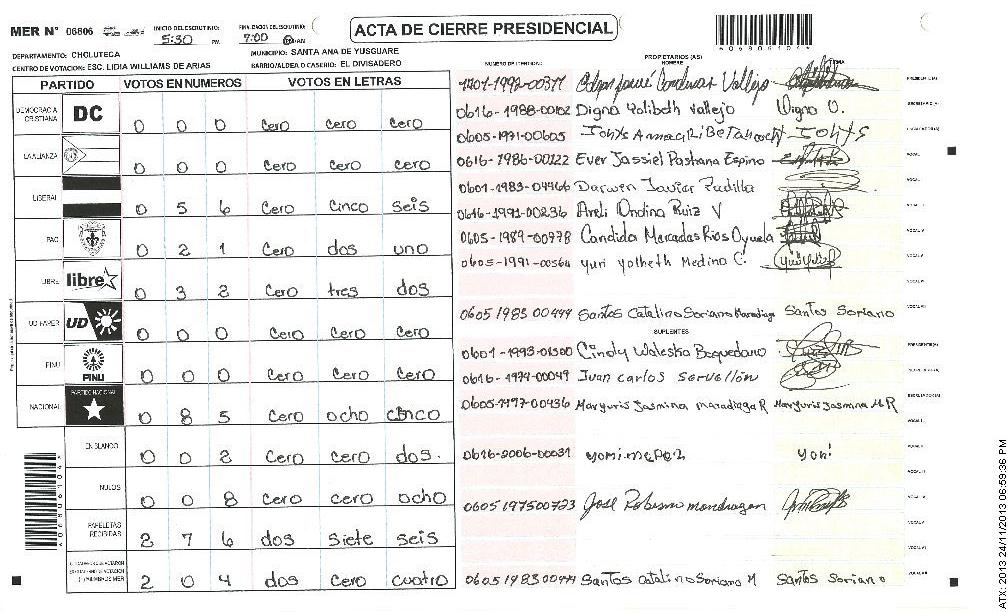 MER N° 06806 INICIO DEL ESCRUTINIO: 5:30 PM. FINALIZACION DEL ESCRUTINIO: 7:00 ACTA DE CIERRE PRESIDENCIAL
DEPARTAMENTO: CHOLUTECA MUNICIPIO: SANTA ANA DE YUSGUARE
CENTRO DE VOTACION: ESC. LIDIA WILLIAMS DE ARIAS BARRIO/ALDEA O CASERIO: EL DIVISADERO
NUMERO DE IDENTIDAD PROPIETARIOS (AS) NOMBRE FIRMA
PARTIDO VOTOS EN NUMEROS VOTOS EN LETRAS
DEMOCRACIA CRISTIANA DC 0 0 0 cero cero cero
LA ALIANZA 0 0 0 cero cero cero
LIBERAL 0 5 6 cero cinco seis
PAC 0 2 1 cero dos uno
LIBRE libre 0 3 2 cero tres dos
UD-FAPER UD 0 0 0 cero cero cero
PINU PINU 0 0 0 cero cero cero
NACIONAL PARTIDO NACIONAL 0 8 5 cero ocho cinco
EN BLANCO 0 0 2 cero cero dos.
NULOS 0 0 8 cero cero ocho
PAPELETAS RECIBIDAS 2 7 6 dos siete seis
2 0 4 dos cero cuatro
0616-1988-00102 Digna Yolibeth Vallejo Digna V.
0605-1971-00605
0616-1986-00122 Ever Jassiel Pastrana Espino
0601-1983-04466 Darwin Javier Padilla
0616-1991-00236 Areli Ondina Ruiz V
0605-1989-00978 Candida Mercedes Rios Oyuela
0605-1991-00564 Yuri Yolibeth Medina C.
0605 1983 00444 Santos Catalino Soriano Maradiaga Santos Soriano
SUPLENTES
0601-1993-01500 Cindy Waleska Baquedano
0616-1974-00049 Juan Carlos Servellón
0605-1997-00436 Maryuris Jasmina maradiaga R Maryuris Jasmina M R
0616-2006-00031
0605 197500723 Jose mondragon
0605 1983 00444 Santos Catalino Soriano M Santos Soriano
ATX 2013 24/11/2013 06:59:36 PM